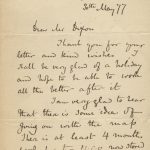 30th May 77
Dear Mr Dixon
Thank you for your
letter and kind wishes I
shall be very glad of a holiday
and hope to be able to work
all the better after it
I am very glad to hear
that there is some idea of
going on with the map
There is at least 4 months